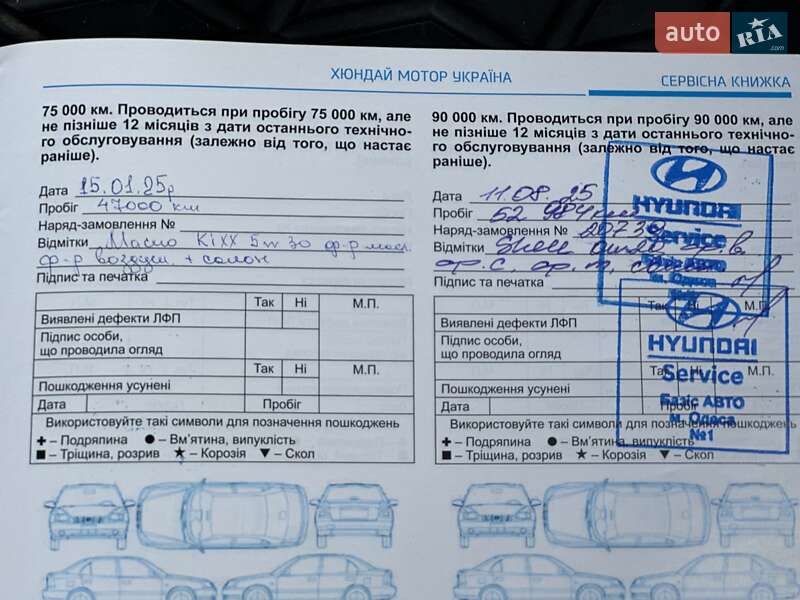 auto RIA.com
ХЮНДАЙ МОТОР УКРАЇНА
СЕРВІСНА КНИЖКА
75 000 км. Проводиться при пробігу 75 000 км, але
не пізніше 12 місяців з дати останнього технічно-
го обслуговування (залежно від того, що настає
раніше).
Дата 15.01.25р
Пробіг 47000 км
Наряд-замовлення №
Відмітки Масло Kixx 5w30 ф-р масл
ф-р воздуш + салон
Підпис та печатка
Так Ні М.П.
Виявлені дефекти ЛФП
Підпис особи,
що проводила огляд
Так Ні М.П.
Пошкодження усунені
Дата Пробіг
Використовуйте такі символи для позначення пошкоджень
– Подряпина – Вм'ятина, випуклість
– Тріщина, розрив – Корозія – Скол
90 000 км. Проводиться при пробігу 90 000 км, але
не пізніше 12 місяців з дати останнього технічно-
го обслуговування (залежно від того, що настає
раніше).
Дата 11.08.25
Пробіг 52 984 км
Наряд-замовлення № 20739
Відмітки Shell
Підпис та печатка
HYUNDAI
Service
Базіс АВТО
м. Одеса
Так Ні М.П.
Виявлені дефекти ЛФП
Підпис особи,
що проводила огляд
Так Ні М.П.
Пошкодження усунені
Дата Пробіг
HYUNDAI
Service
Базіс АВТО
м. Одеса
№1
Використовуйте такі символи для позначення пошкоджень
– Подряпина – Вм'ятина, випуклість
– Тріщина, розрив – Корозія – Скол